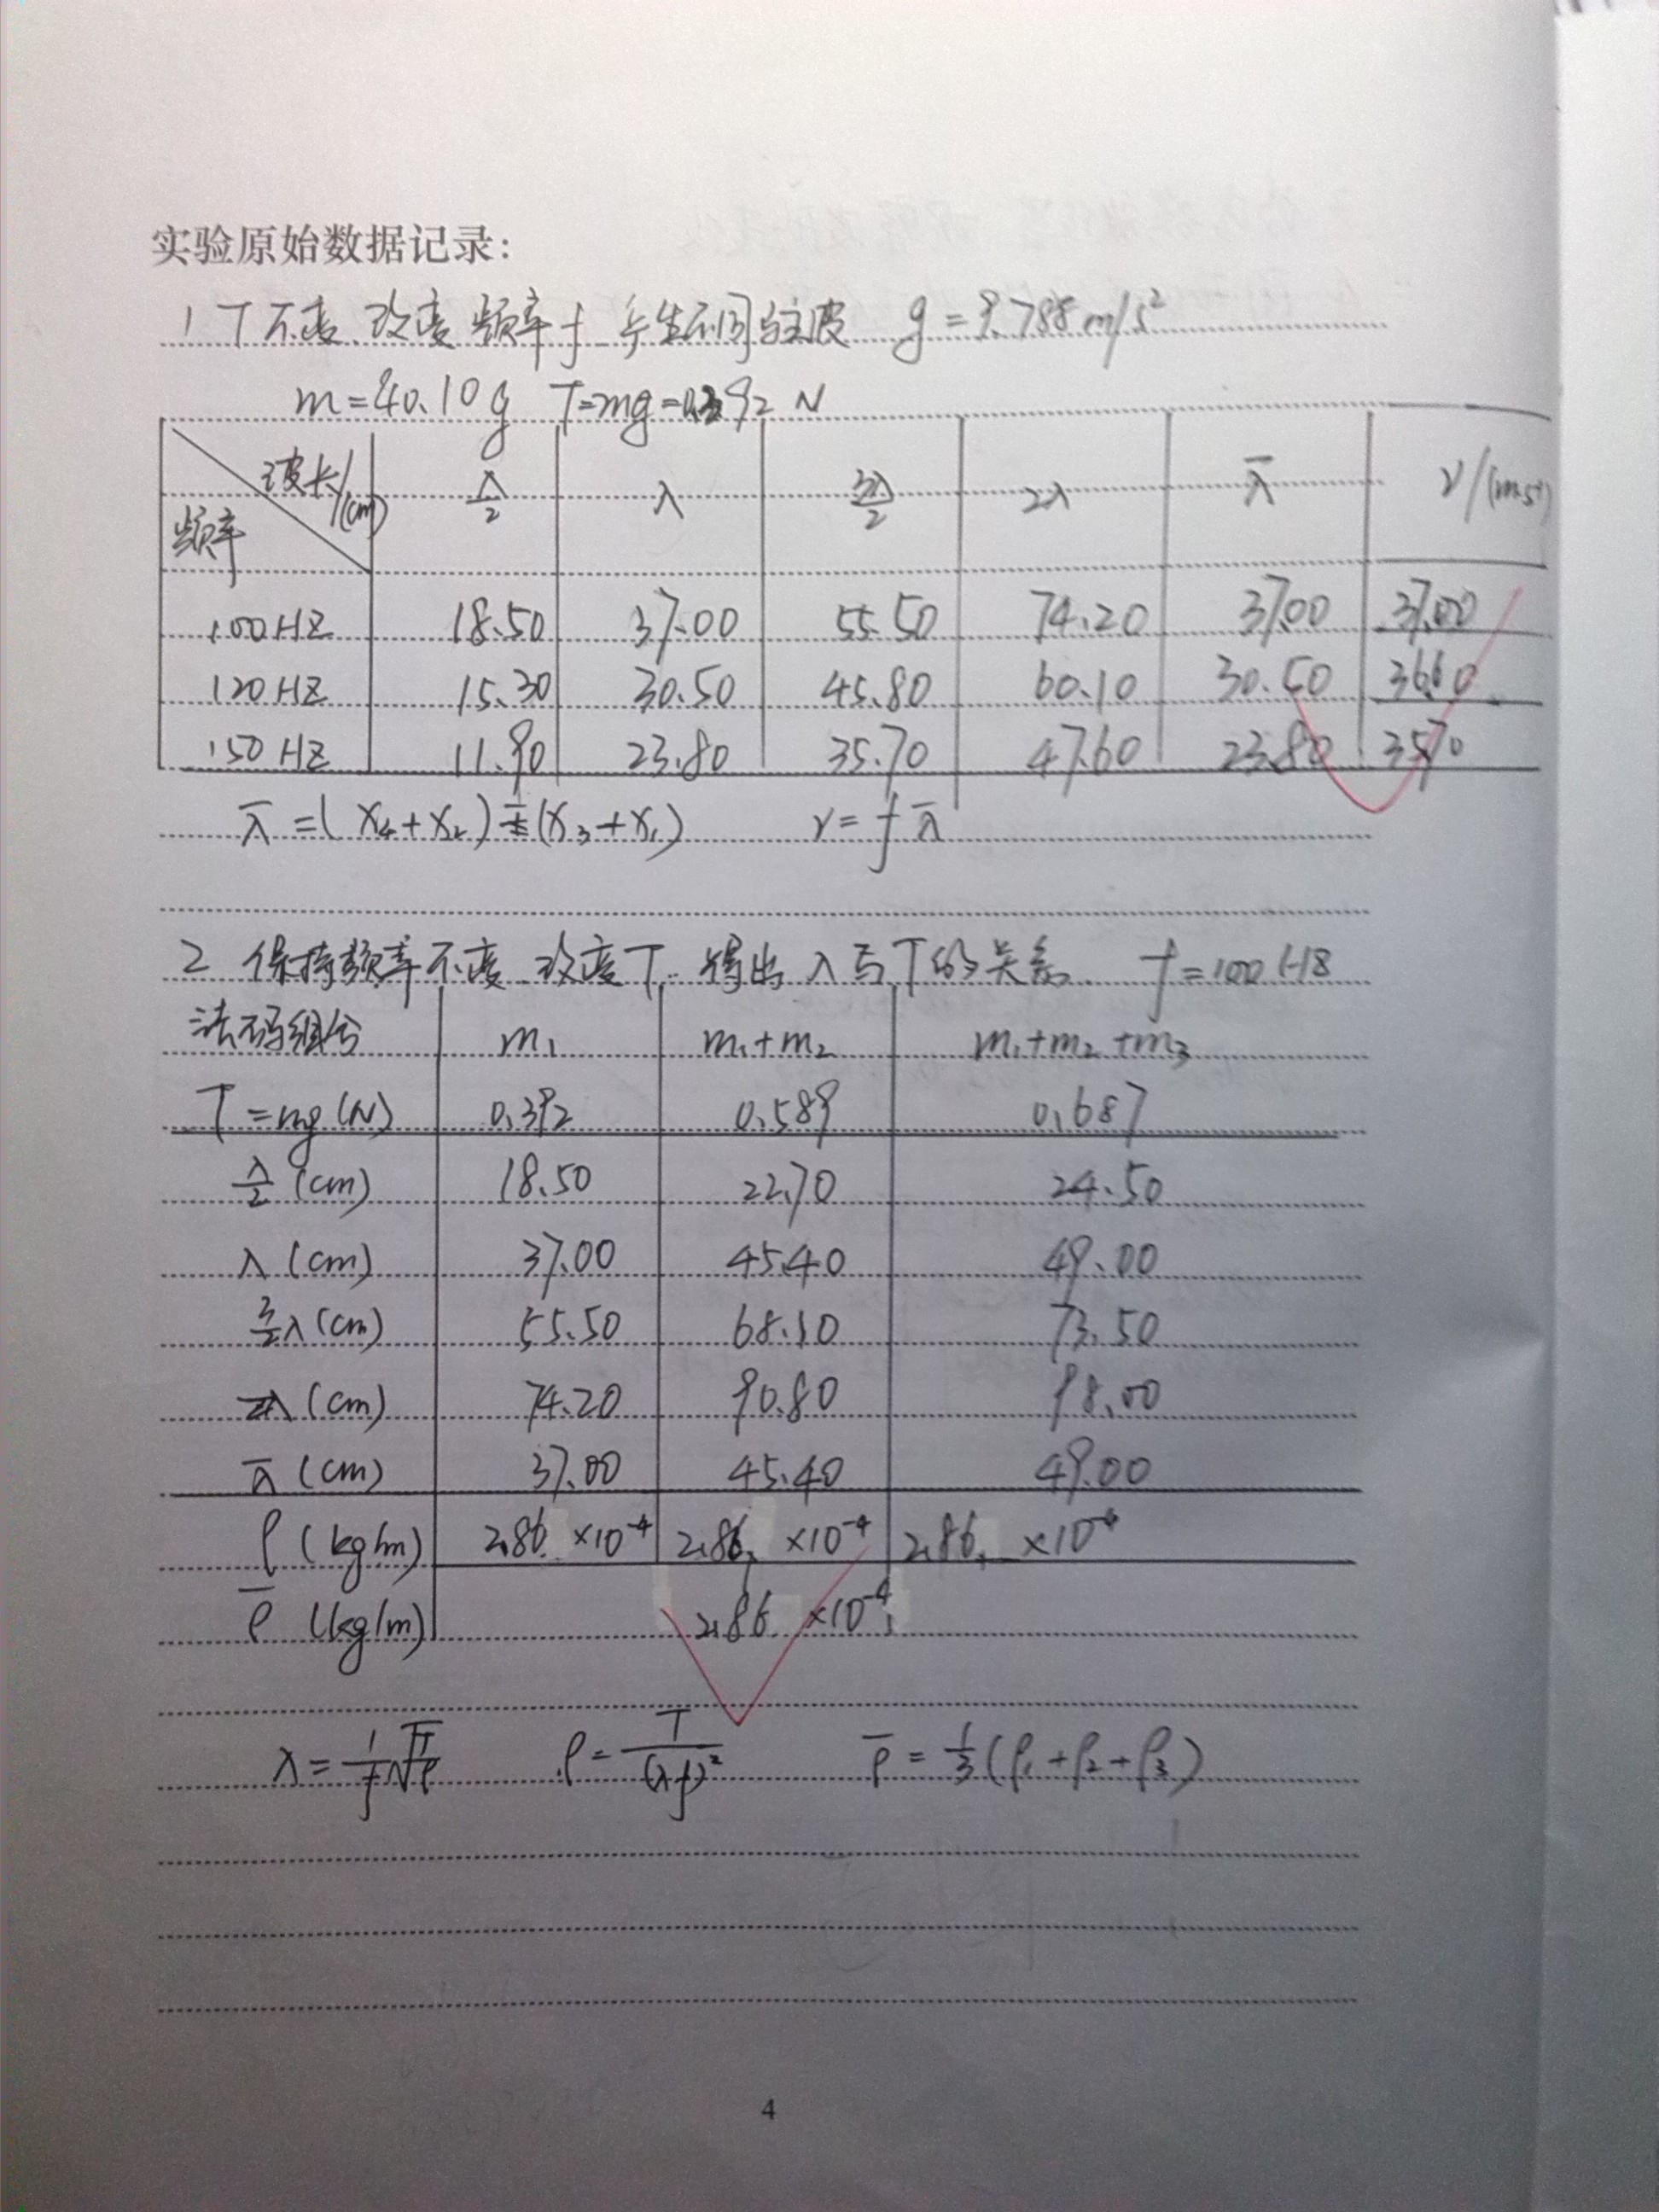 实验原始数据记录：
1 T不变、改变频率f 产生不同驻波 g=9.788m/s²
m=40.10g T=mg=0.392 N
波长/(cm) 频率 λ/2 λ 3λ/2 2λ λ̄ v/(ms⁻¹)
100HZ 18.50 37.00 55.50 74.20 37.00 37.00
120HZ 15.30 30.50 45.80 60.10 30.50 36.60
150HZ 11.90 23.80 35.70 47.60 23.80 35.70
λ̄=(X₄+X₂)-(X₃+X₁) v=fλ̄
2 保持频率不变、改变T、得出λ与T的关系. f=100HZ
法码组合 m₁ m₁+m₂ m₁+m₂+m₃
T=mg(N) 0.392 0.589 0.687
λ/2 (cm) 18.50 22.70 24.50
λ (cm) 37.00 45.40 49.00
3/2λ (cm) 55.50 68.10 73.50
2λ (cm) 74.20 90.80 98.00
λ̄ (cm) 37.00 45.40 49.00
ρ (kg/m) 2.86 ×10⁻⁴ 2.86 ×10⁻⁴ 2.86 ×10⁻⁴
ρ̄ (kg/m) 2.86 ×10⁻⁴
λ=1/f√(T/ρ) ρ=T/(λf)² ρ̄=1/3(ρ₁+ρ₂+ρ₃)
4